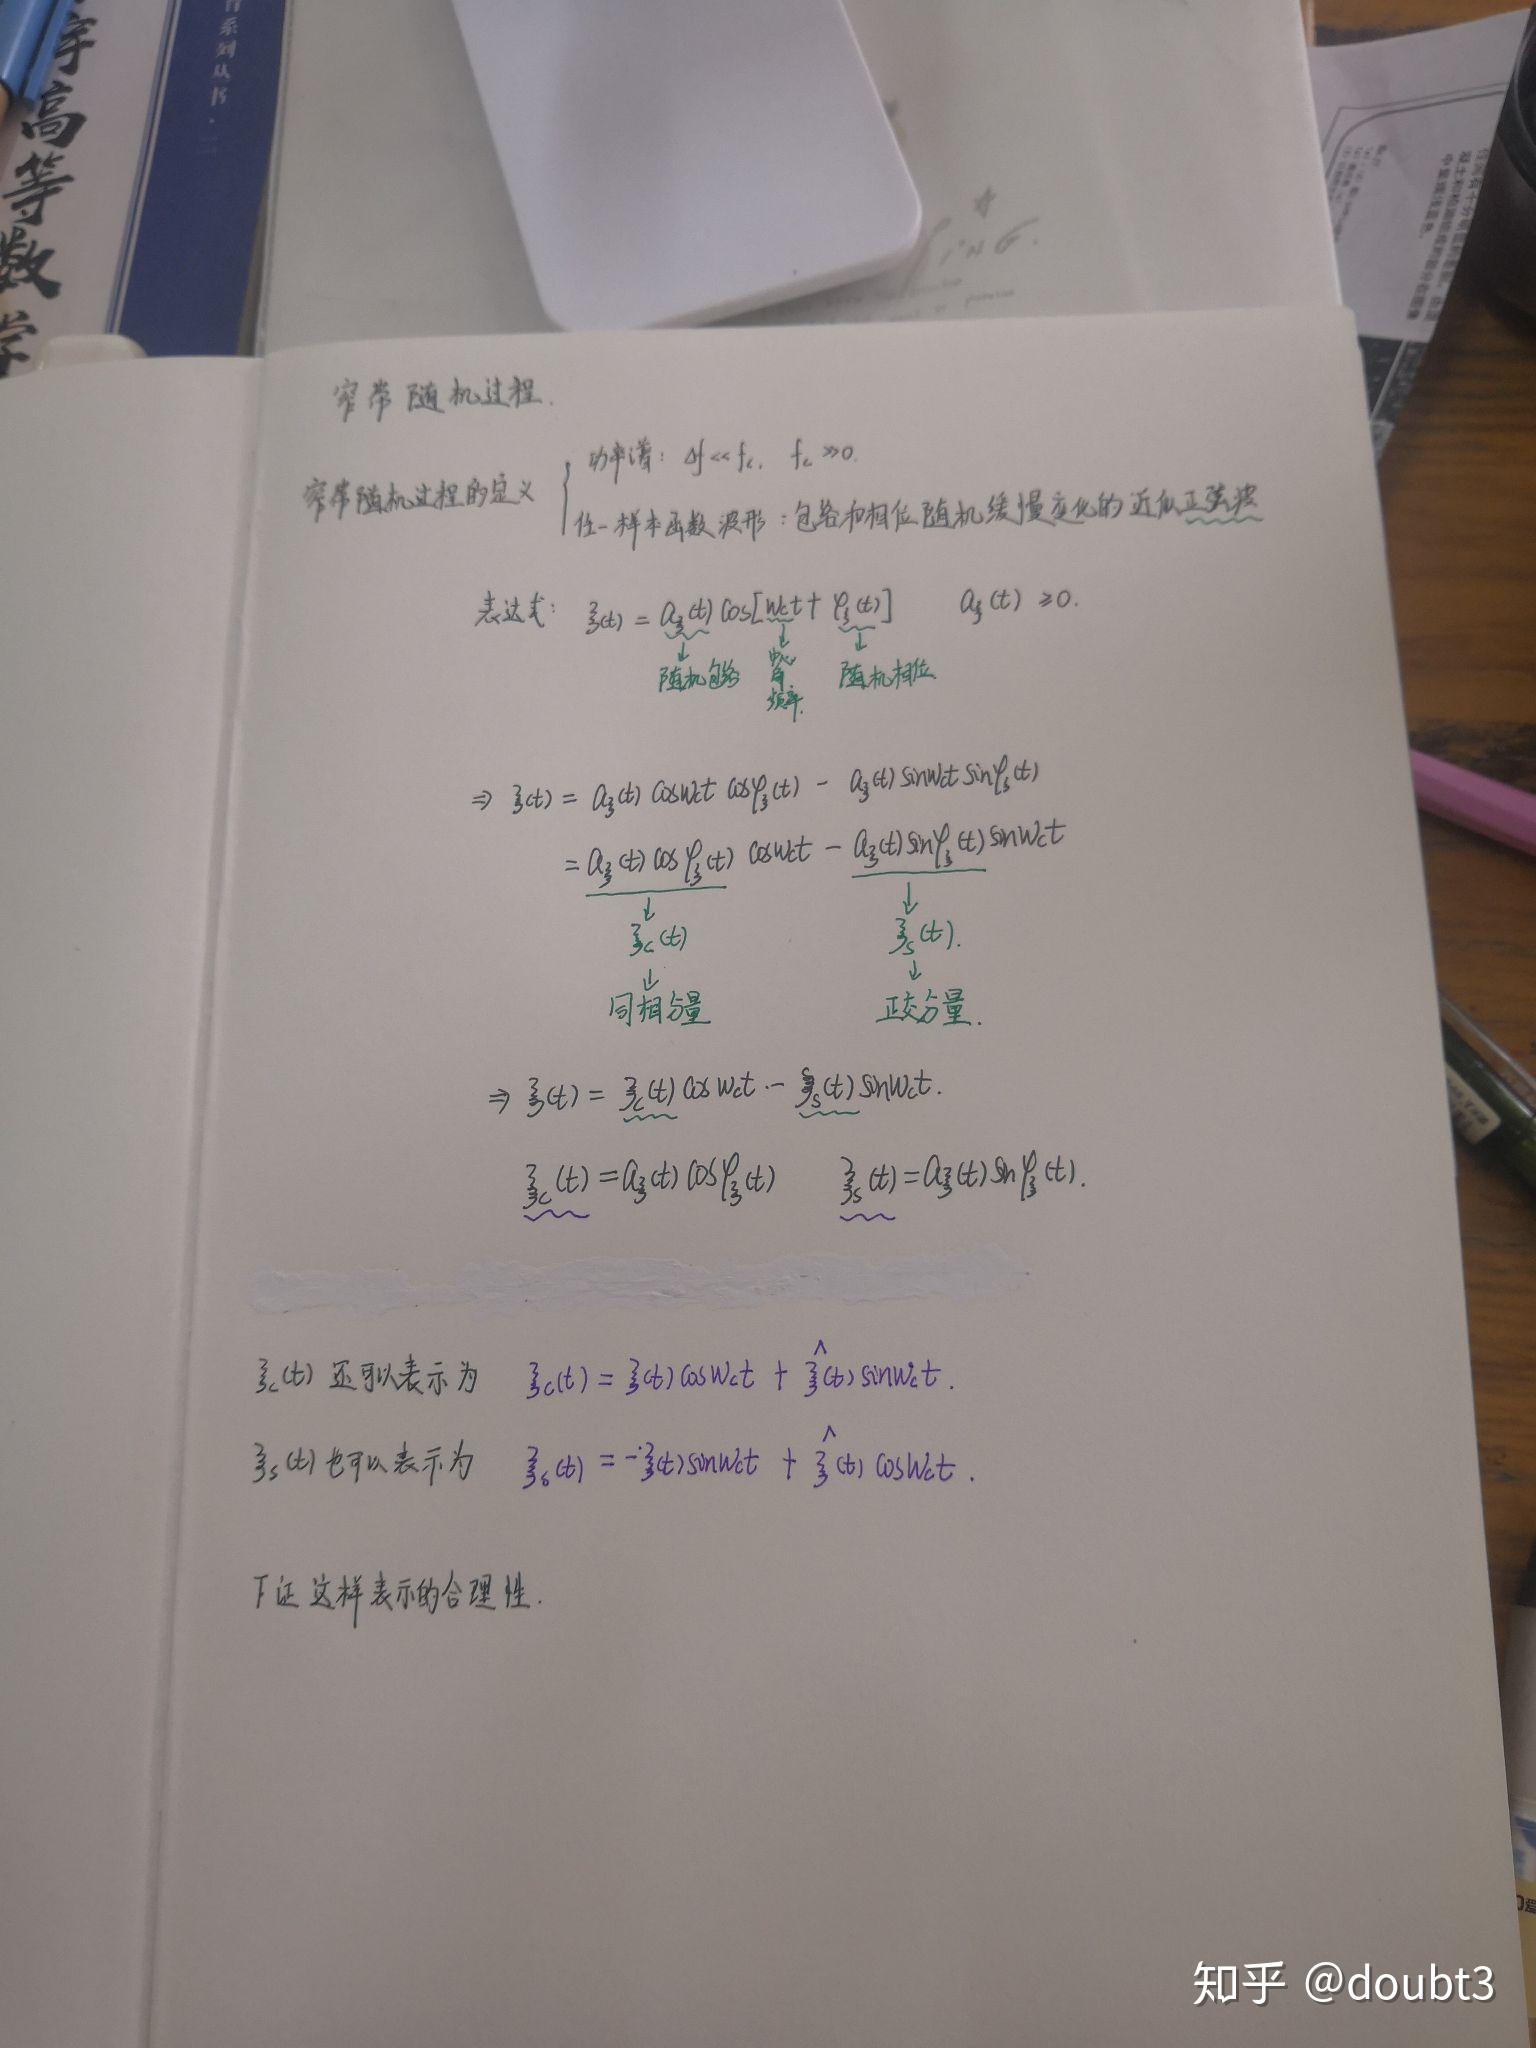 高等数学
系列丛书·二
ING.
窄带随机过程.
窄带随机过程的定义
功率谱: Δf<<fc, fc>>0.
任一样本函数波形:包络和相位随机缓慢变化的近似正弦波
表达式: ξ(t) = aξ(t) cos[ωct + φξ(t)] aξ(t) ≥0.
随机包络 中心角频率. 随机相位
⇒ ξ(t) = aξ(t) cosωct cosφξ(t) - aξ(t) sinωct sinφξ(t)
= aξ(t) cosφξ(t) cosωct - aξ(t) sinφξ(t) sinωct
ξc(t) ξs(t).
同相分量 正交分量.
⇒ ξ(t) = ξc(t) cosωct - ξs(t) sinωct.
ξc(t) = aξ(t) cosφξ(t) ξs(t) = aξ(t) sinφξ(t).
ξc(t) 还可以表示为 ξc(t) = ξ(t) cosωct + ξ̂(t) sinωct.
ξs(t) 也可以表示为 ξs(t) = -ξ(t) sinωct + ξ̂(t) cosωct.
下证这样表示的合理性.
知乎 @doubt3